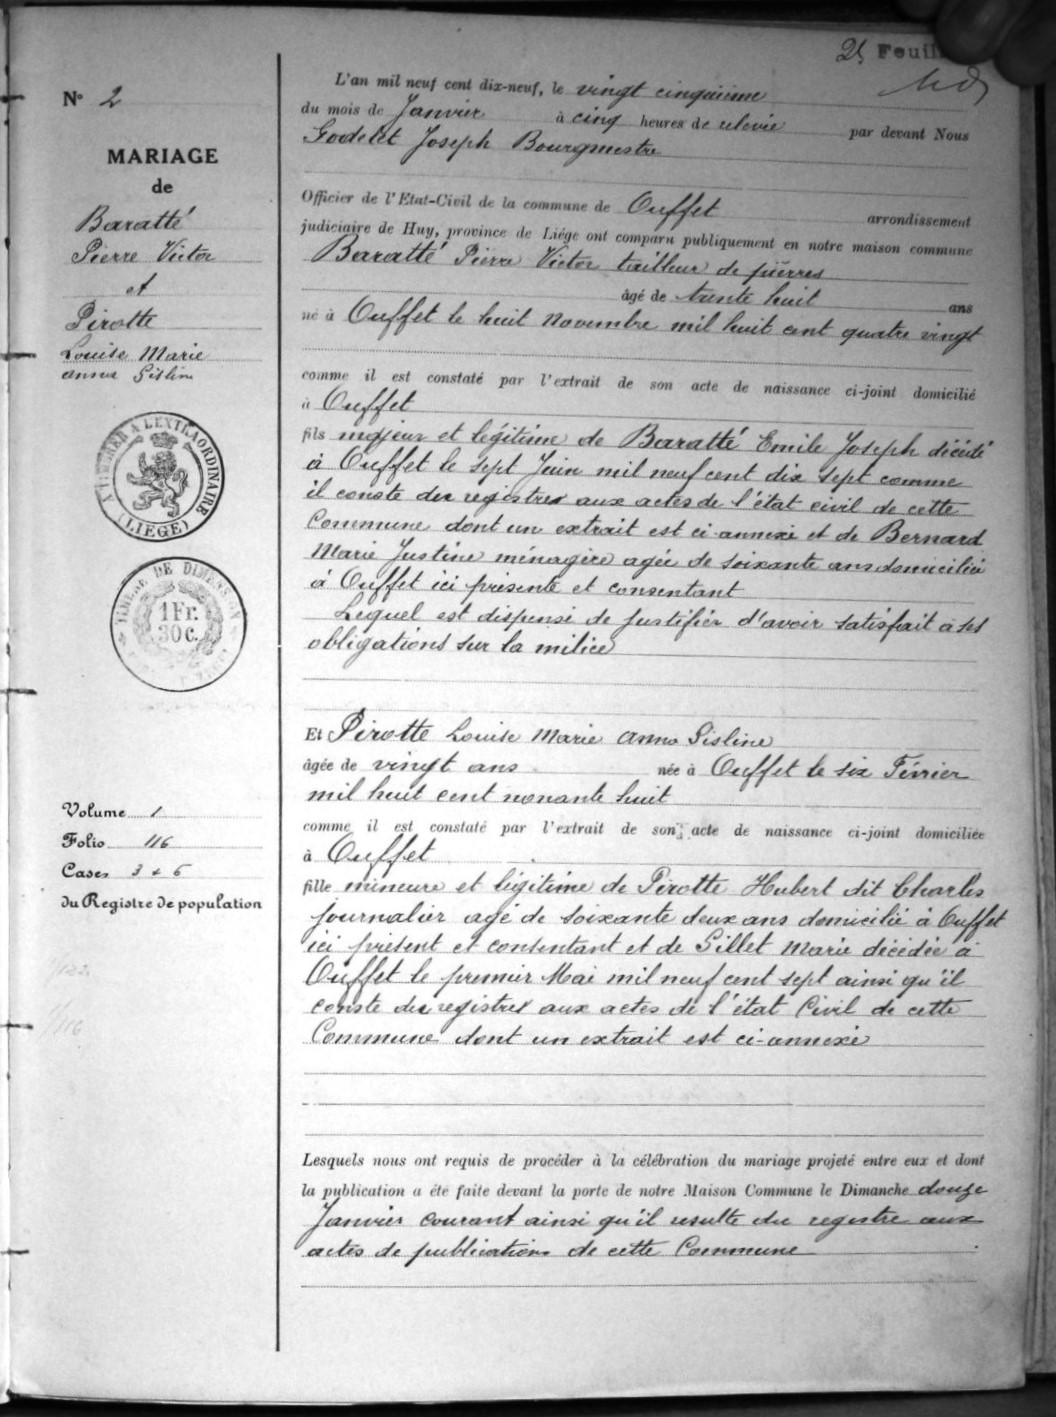 2e Feuil
N° 2
MARIAGE
de
Baratté
Pierre Victor
et
Pirotte
Louise Marie
Anna Gisline
A TIMBRER A L'EXTRAORDINAIRE
(LIEGE)
TIMBRE DE DIMENSION
1 Fr.
30 c.
Volume 1
Folio 116
Cases 3 & 6
du Registre de population
116
L'an mil neuf cent dix-neuf, le vingt cinquième
du mois de Janvier à cinq heures de relevée par devant Nous
Godelet Joseph Bourgmestre
Officier de l'Etat-Civil de la commune de Ouffet arrondissement
judiciaire de Huy, province de Liége ont comparu publiquement en notre maison commune
Baratté Pierre Victor tailleur de pierres
âgé de trente huit ans
né à Ouffet le huit Novembre mil huit cent quatre vingt
comme il est constaté par l'extrait de son acte de naissance ci-joint domicilié
à Ouffet
fils majeur et légitime de Baratté Emile Joseph décédé
à Ouffet le sept Juin mil neuf cent dix sept comme
il conste des registres aux actes de l'état civil de cette
Commune dont un extrait est ci-annexé et de Bernard
Marie Justine ménagère agée de soixante ans domiciliée
à Ouffet ici présente et consentant
Lequel est dispensé de justifier d'avoir satisfait à ses
obligations sur la milice
Et Pirotte Louise Marie Anna Gisline
âgée de vingt ans née à Ouffet le six Février
mil huit cent nonante huit
comme il est constaté par l'extrait de son acte de naissance ci-joint domiciliée
à Ouffet
fille mineure et légitime de Pirotte Hubert dit Charles
journalier agé de soixante deux ans domicilié à Ouffet
ici présent et consentant et de Gillet Marie décédée à
Ouffet le premier Mai mil neuf cent sept ainsi qu'il
conste des registres aux actes de l'état Civil de cette
Commune dont un extrait est ci-annexé
Lesquels nous ont requis de procéder à la célébration du mariage projeté entre eux et dont
la publication a été faite devant la porte de notre Maison Commune le Dimanche douze
Janvier courant ainsi qu'il resulte du registre aux
actes de publication de cette Commune